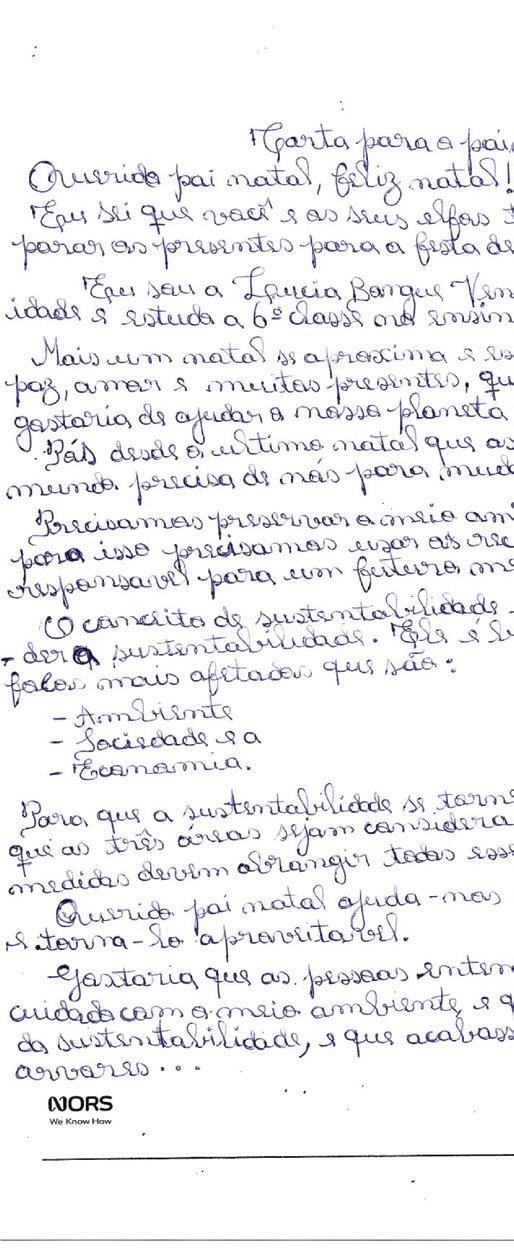 Carta para o pai
Querido pai natal, feliz natal!
Eu sei que você e os seus elfos
parar os presentes para a festa de
Eu sou a Laucia Bangue
idade e estuda a 6ª classe no ensin
Mais um natal se aproxima e es
paz, amor e muitos presentes, qu
gostaria de ajudar o nosso planeta
Pós desde o ultimo natal que as
mundo precisa de nós para mud
Precisamos preservar o meio am
para isso precisamos usar os rec
responsavel para um futuro me
O conceito de sustentabilidade
- dera sustentabilidade. Ele é b
focos mais afetados que são:
- Ambiente
- Sociedade e a
- Economia.
Para que a sustentabilidade se torne
que as três áreas sejam considera
medidas devem abrangir todas esse
Querido pai natal ajuda-nos
e torna-lo aproveitavel.
Gostaria que as pessoas enten
cuidado com o meio ambiente, e q
da sustentabilidade, e que acabass
arvores...
NORS
We Know How